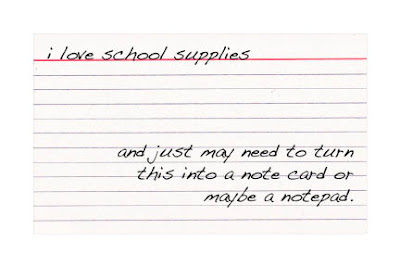 i love school supplies
and just may need to turn
this into a note card or
maybe a notepad.